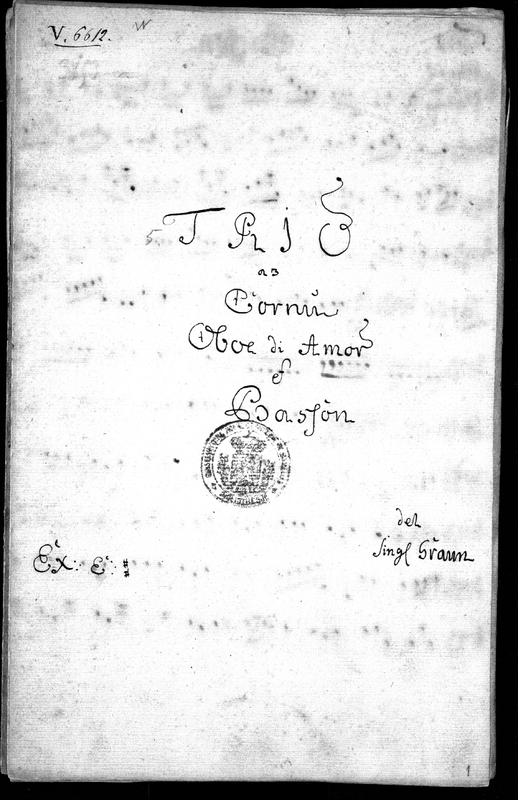 V. 6612.
W
5 TRIO
a 3
Cornu
Oboe di Amor
et
Bassòn
del
Sing: Graun
Ex: E: ♯
1